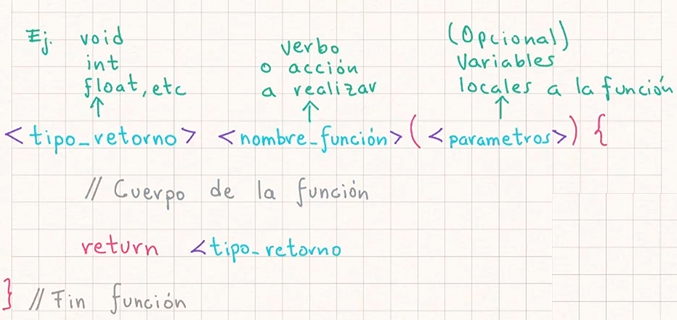 Ej. void
int
float, etc
verbo
o acción
a realizar
(Opcional)
Variables
locales a la función
<tipo_retorno> <nombre_función> (<parametros>) {
// Cuerpo de la función
return <tipo_retorno
} // Fin función